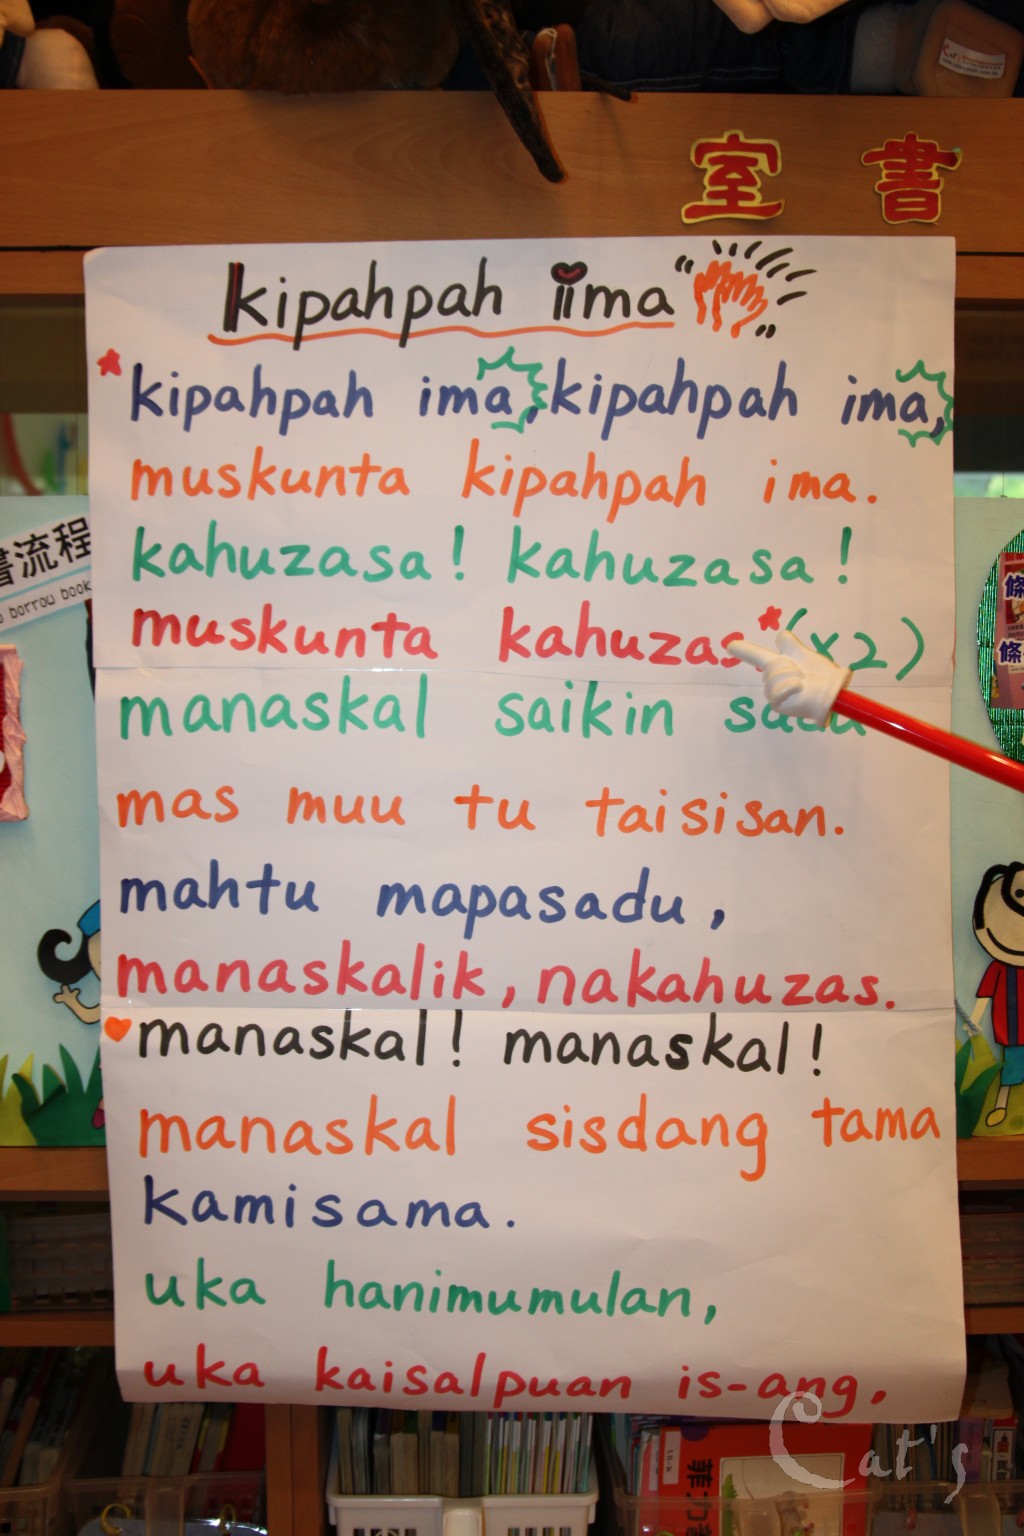 書室
kipahpah iima
kipahpah ima, kipahpah ima,
muskunta kipahpah ima.
kahuzasa! kahuzasa!
muskunta kahuzas (x2)
manaskal saikin
mas muu tu taisisan.
mahtu mapasadu,
manaskalik, nakahuzas.
manaskal! manaskal!
manaskal sisdang tama
kamisama.
uka hanimumulan,
uka kaisalpuan is-ang,
書流程
borrow book
條
條
菲力
Cat's